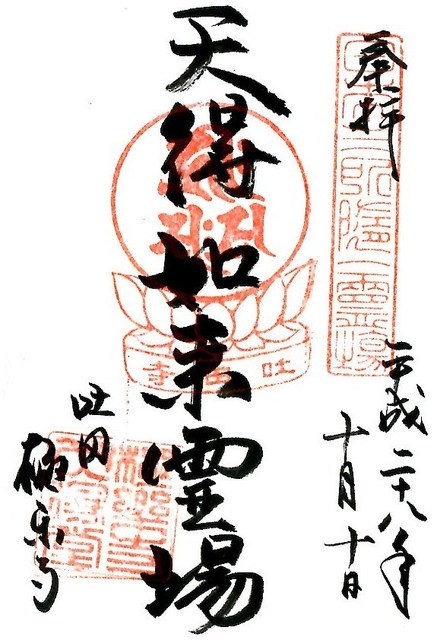 奉拝
平成二十八年
十月十日
天得如来霊場
吐田
極楽寺